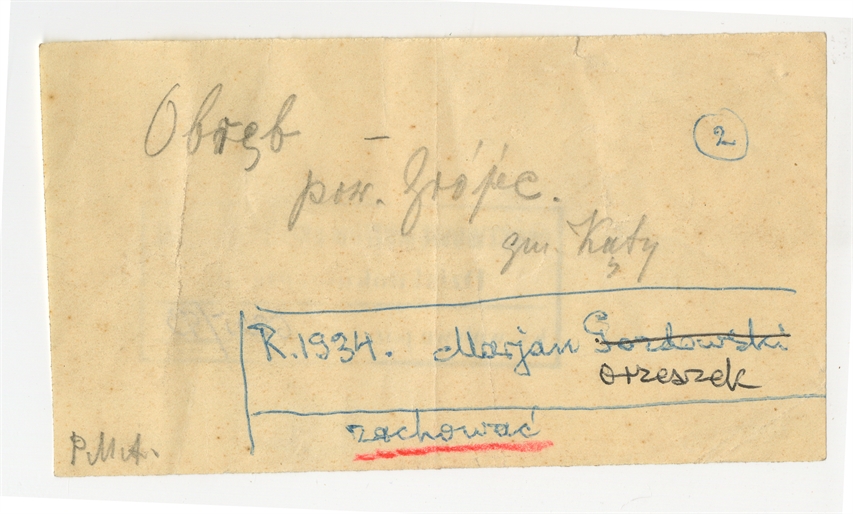 Obręb –
2
pow. Grójec.
gm. Kąty
R. 1934. Marjan Gozdowski
orzeszek
zachować
P.M.A.